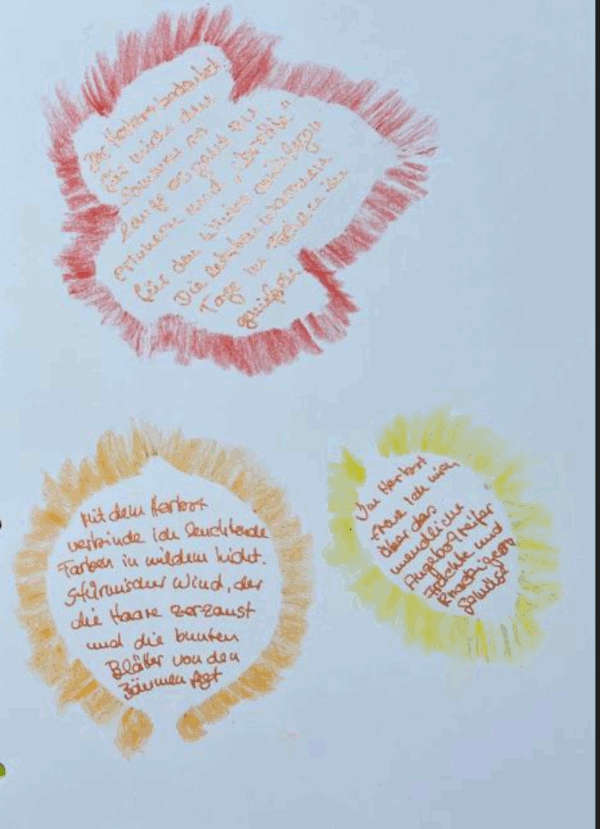 Der Herbst bedeutet
für mich den
Sommer so
lange es geht zu
für den Winter einzulegen
Die letzten warmen
Tage im Freien zu
genießen
Mit dem Herbst
verbinde ich leuchtende
Farben in mildem Licht.
Stürmischer Wind, der
die Haare zerzaust
und die bunten
Blätter von den
Bäumen fegt
Im Herbst
freue ich mich
über das
unendliche
Angebot reifer
Früchte und
knackigem
Gemüse